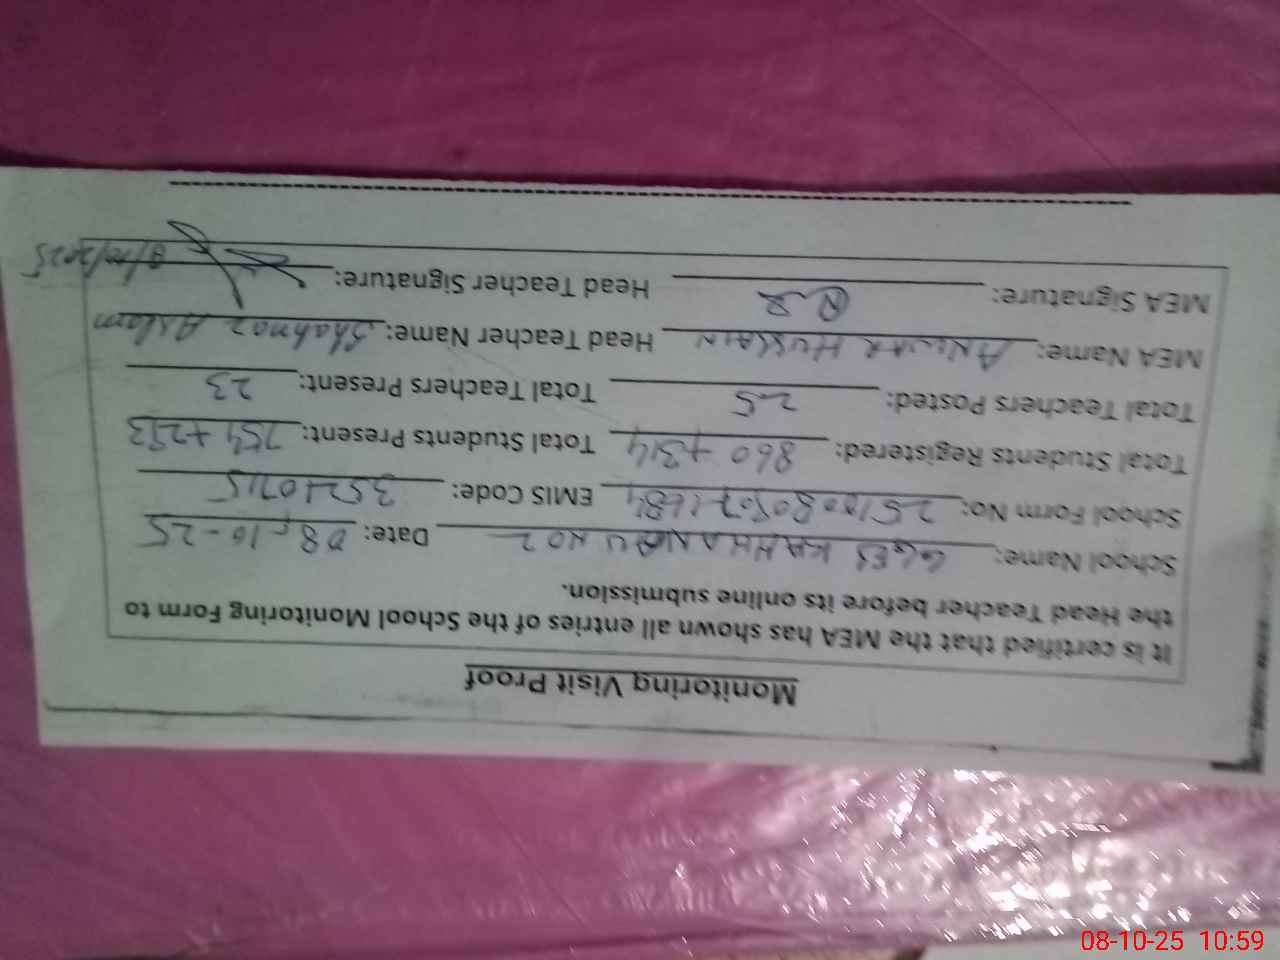 Monitoring Visit Proof
It is certified that the MEA has shown all entries of the School Monitoring Form to
the Head Teacher before its online submission.
School Name: GGES KAHHA NAU NO 2 Date: 08-10-25
School Form No: EMIS Code: 35210715
Total Students Registered: 860+314 Total Students Present: 754+293
Total Teachers Posted: 25 Total Teachers Present: 23
MEA Name: ANWAR HUSSAIN Head Teacher Name: Shahnaz Aslam
MEA Signature: Head Teacher Signature: 8/10/2025
08-10-25 10:59